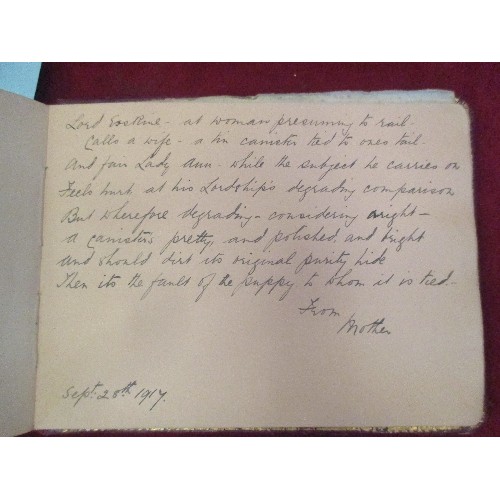 Lord Erskine - at woman presuming to rail -
Calls a wife - a tin canister tied to ones tail -
And fair Lady Ann - while the subject he carries on
Feels hurt at his Lordship's degrading comparison
But wherefore degrading - considering aright -
a canisters pretty, and polished, and bright
and should dirt its original purity hide
Then its the fault of the puppy to whom it is tied -
From
Mother
Sept. 28th 1917.